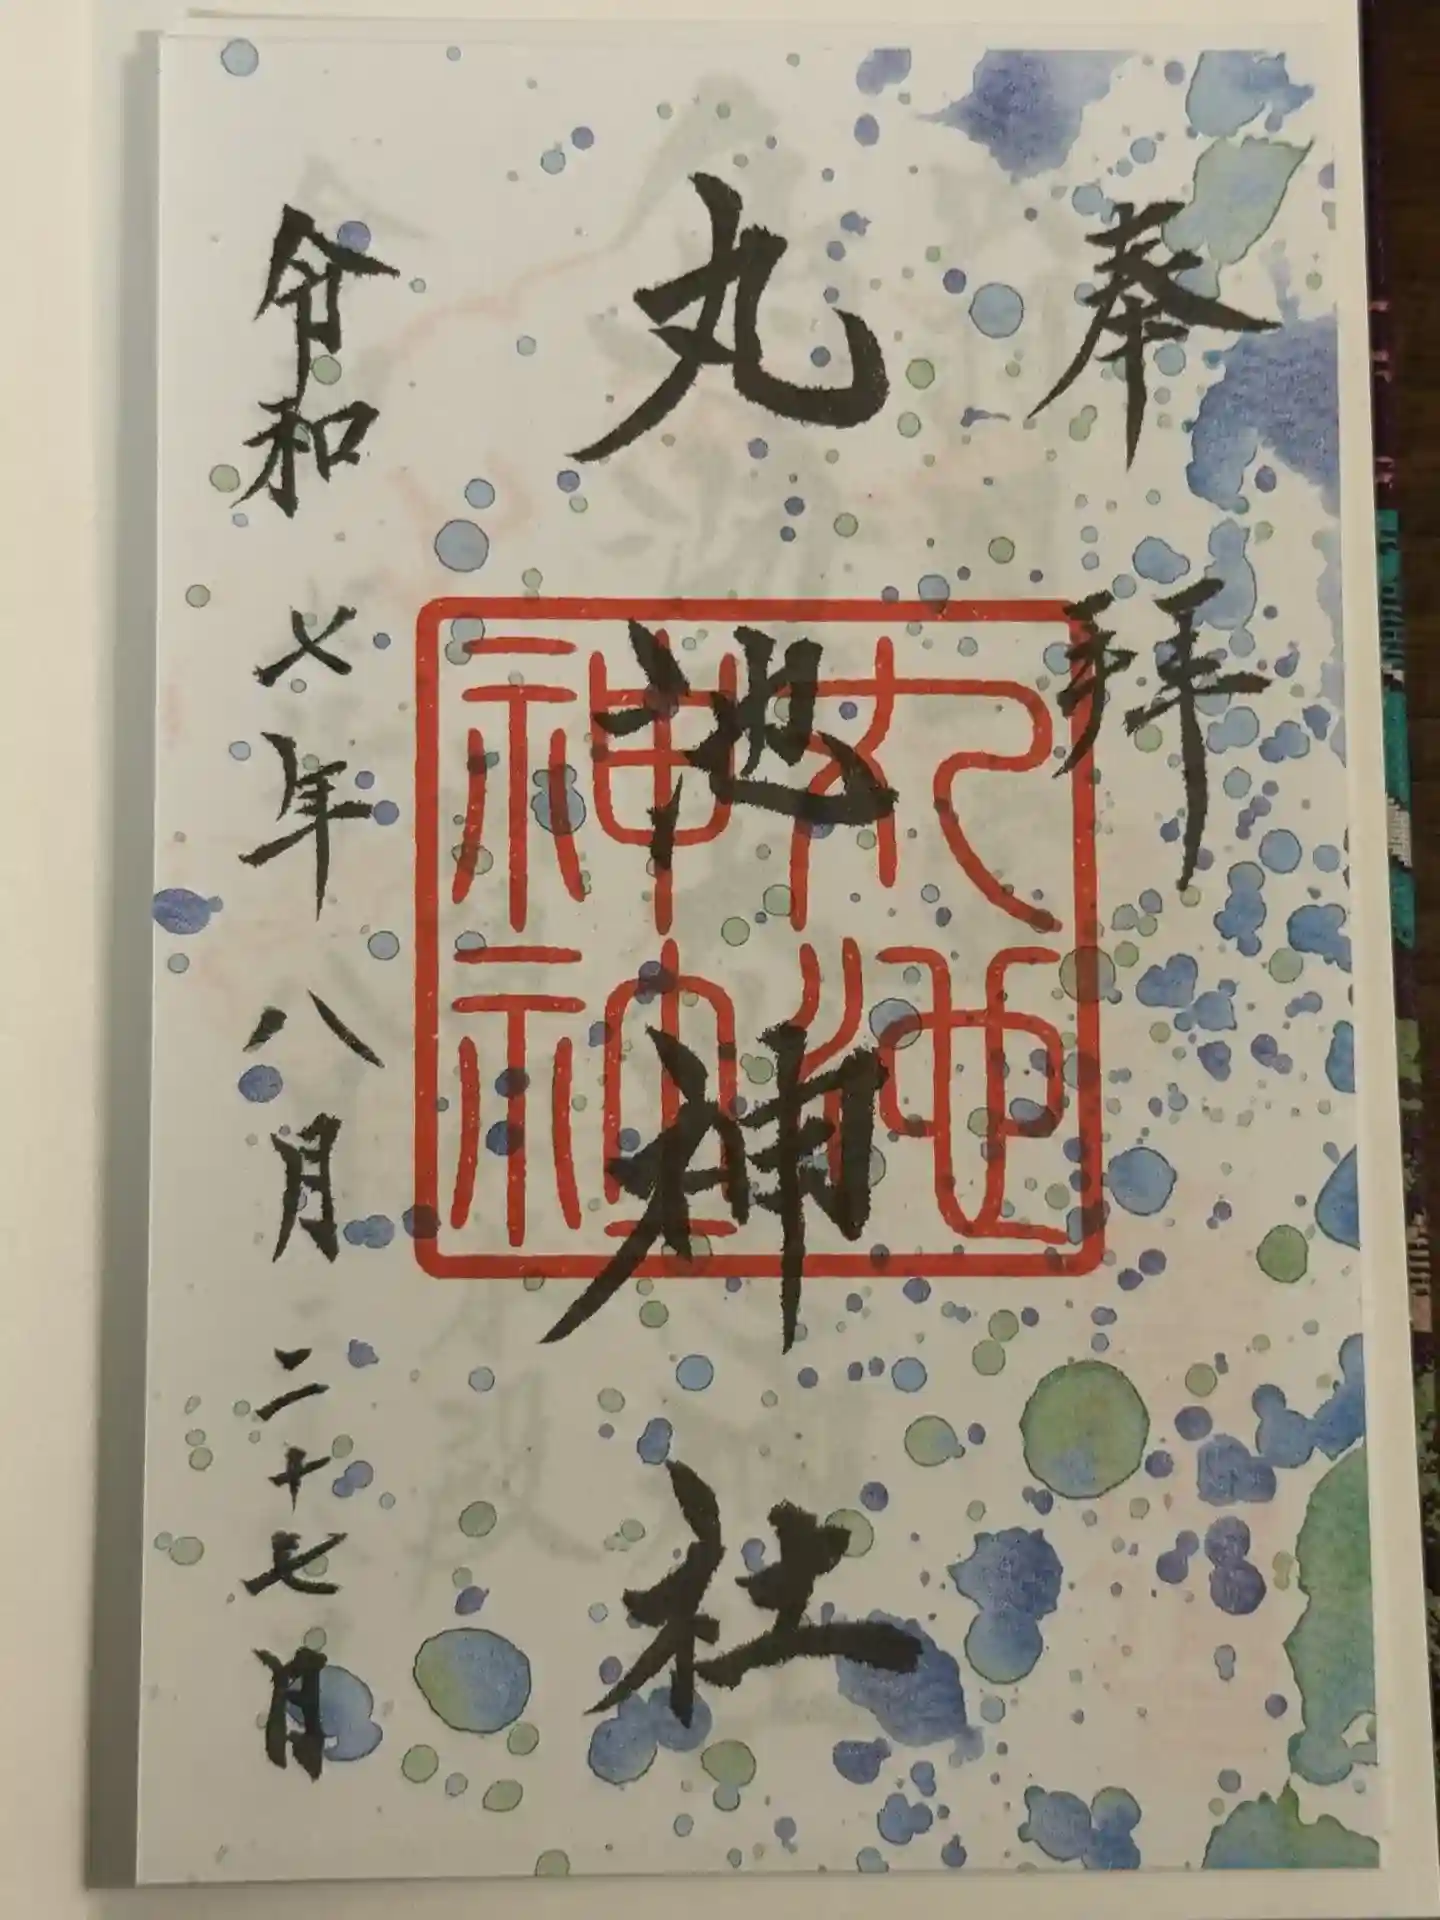 奉拝
丸池神社
丸池
神社
令和七年八月二十七日